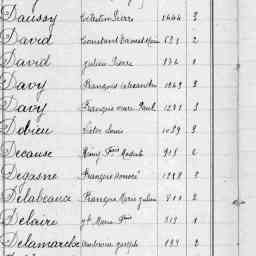 Daussy Célestin Pierre 1664 3
David Constant Ernest 531 2
David Julien Pierre 134 1
Davy François Alexandre 1049 3
Davy François Marc Paul 1271 3
Debieu Victor Louis 1039 3
Decause Rémy 905 2
Degasne François Honoré 1278 3
Delabeaux François Marie Julien 800 2
Delaire Marie 513 1
Delamarche Ambroise Joseph 2